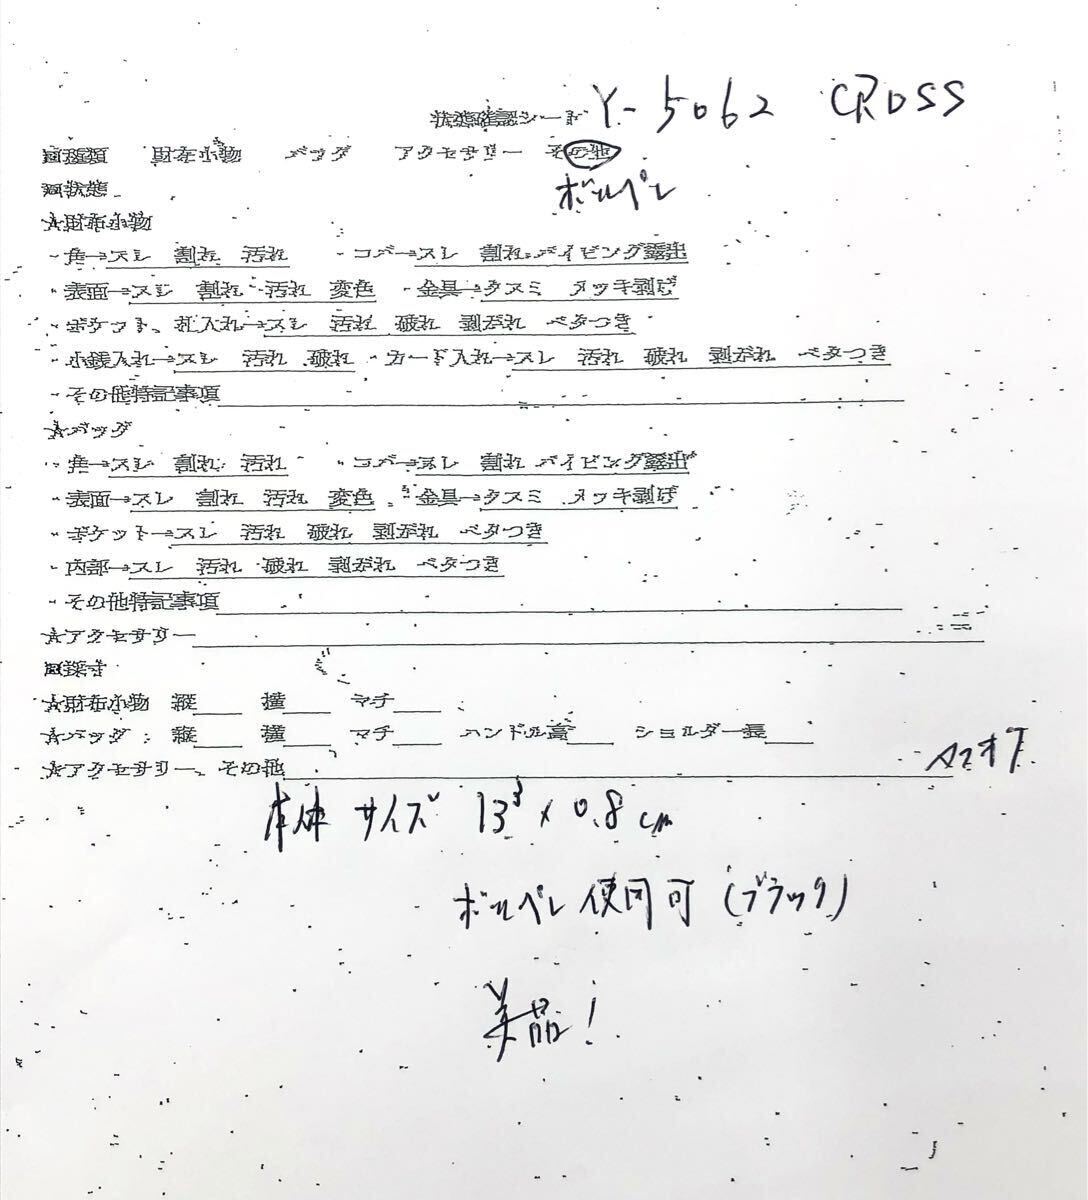 状態確認シート Y-5062 CROSS
回種類 財布小物 バッグ アクセサリー その他
ボールペン
回状態
★財布小物
・角→スレ 割れ 汚れ ・コバ→スレ 割れ パイピング露出
・表面→スレ 割れ 汚れ 変色 ・金具→クスミ メッキ剥げ
・ポケット、札入れ→スレ 汚れ 破れ 剥がれ ベタつき
・小銭入れ→スレ 汚れ 破れ ・カード入れ→スレ 汚れ 破れ 剥がれ ベタつき
・その他特記事項
★バッグ
・角→スレ 割れ 汚れ ・コバ→スレ 割れ パイピング露出
・表面→スレ 割れ 汚れ 変色 ・金具→クスミ メッキ剥げ
・ポケット→スレ 汚れ 破れ 剥がれ ベタつき
・内部→スレ 汚れ 破れ 剥がれ ベタつき
・その他特記事項
★アクセサリー
回採寸
★財布小物 縦 横 マチ
★バッグ 縦 横 マチ ハンドル高 ショルダー長
★アクセサリー、その他
本体 サイズ 13³ × 0.8 cm
ボールペン 使用可 (ブラック)
美品!